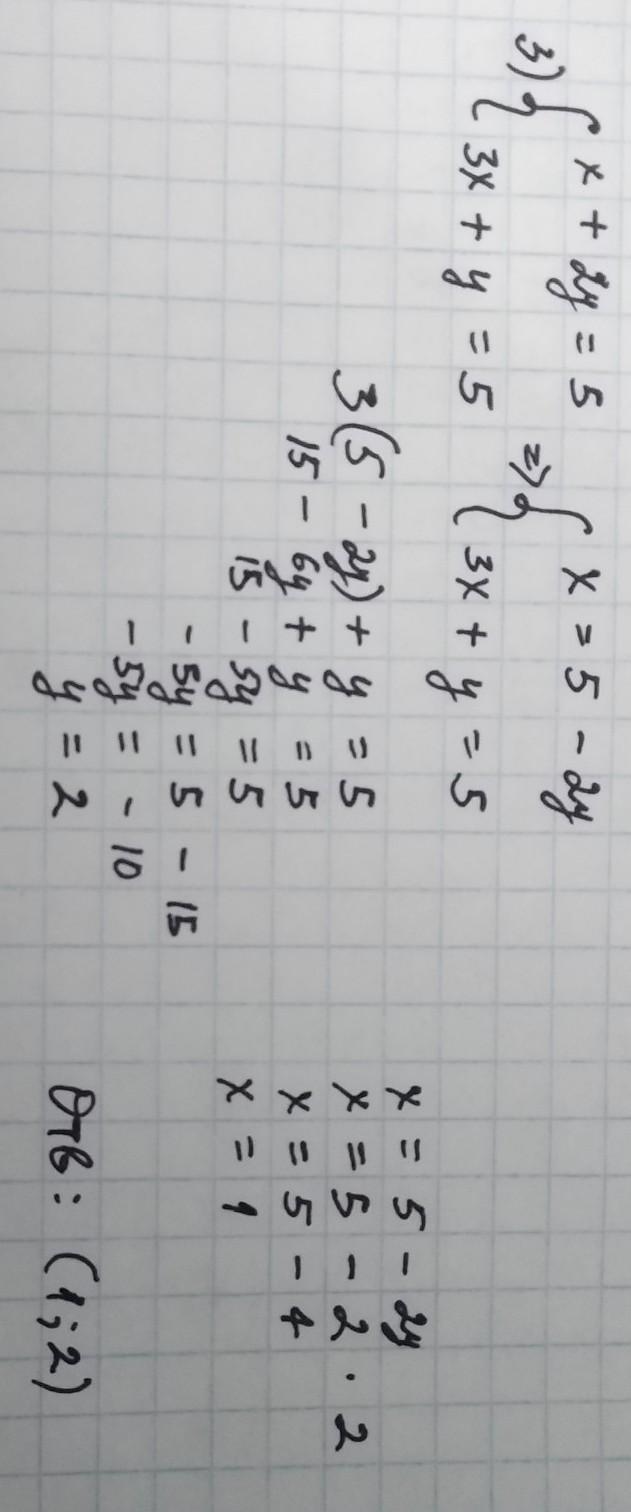 3) { x + 2y = 5 => { x = 5 - 2y
3x + y = 5 3x + y = 5
3(5 - 2y) + y = 5
15 - 6y + y = 5
15 - 5y = 5
- 5y = 5 - 15
- 5y = - 10
y = 2
x = 5 - 2y
x = 5 - 2 · 2
x = 5 - 4
x = 1
Отв: (1; 2)